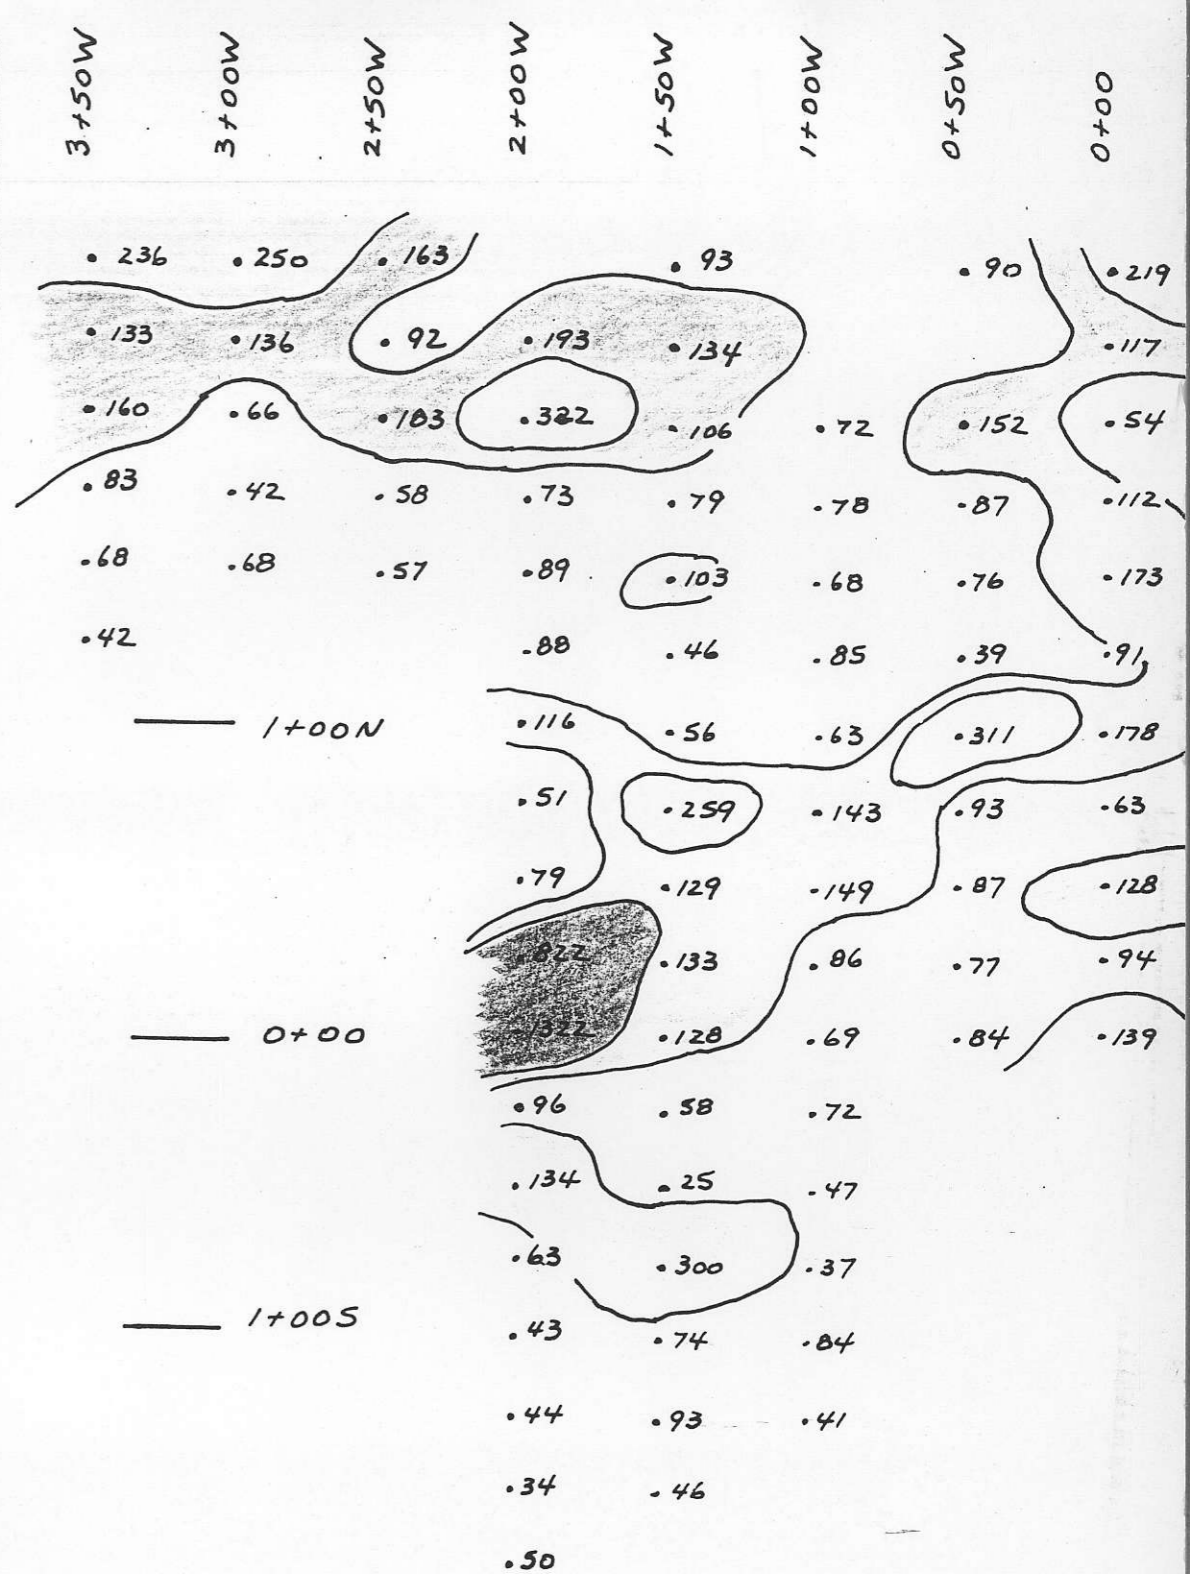 3+50W 3+00W 2+50W 2+00W 1+50W 1+00W 0+50W 0+00
236 250 163 93 90 219
133 136 92 193 134 117
160 66 183 322 106 72 152 54
83 42 58 73 79 78 87 112
68 68 57 89 103 68 76 173
42 88 46 85 39 91
1+00N 116 56 63 311 178
51 259 143 93 63
79 129 149 87 128
822 133 86 77 94
0+00 1322 128 69 84 139
96 58 72
134 25 47
63 300 37
1+00S 43 74 84
44 93 41
34 46
50